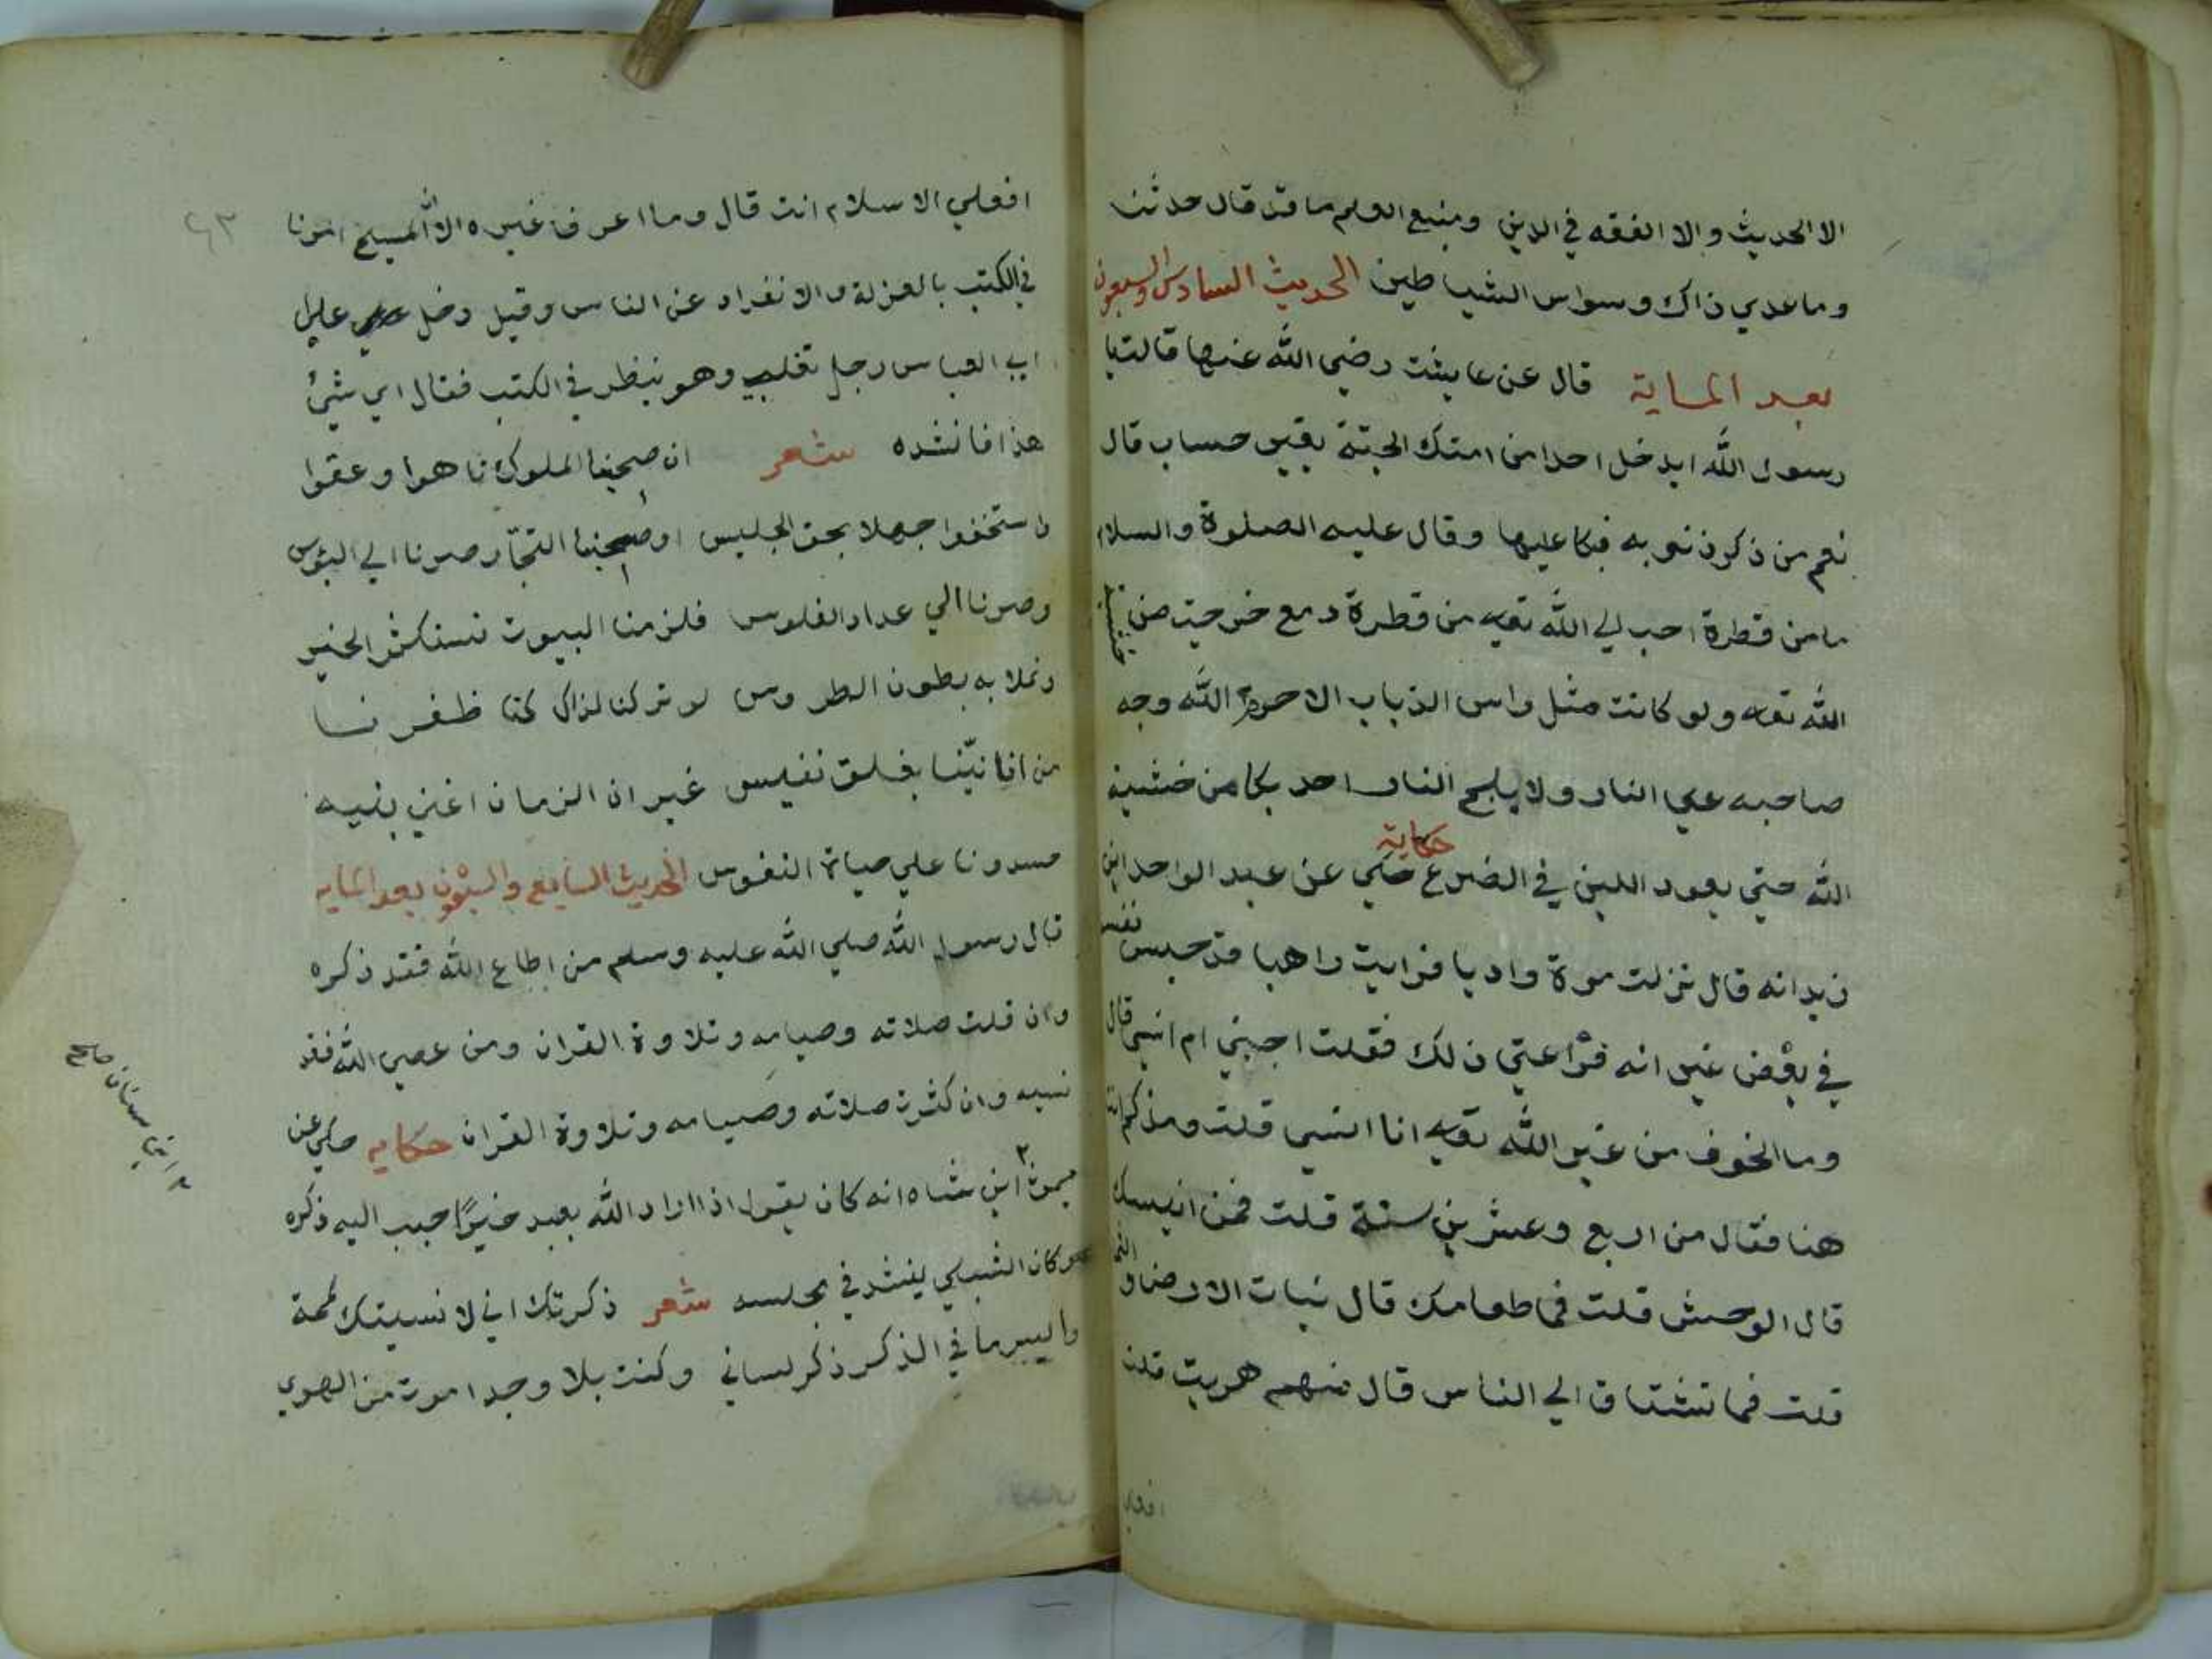 الا الحديث والا الفقه في الدين ومنبع العلم ما قد قال حدثنا
وما عدي ذاك وسواس الشياطين الحديث السادس والسبعون
بعد الماية قال عن عايشت رضي الله عنها قالت يا
رسول الله ايدخل احدا من امتك الجنة بغير حساب قال
نعم من ذكر ذنوبه فبكا عليها وقال عليه الصلوة والسلام
ما من قطرة احب الي الله تعه من قطرة دمع خرجت من خشية
الله تعه ولو كانت مثل راس الذباب الا حرم الله وجه
صاحبه علي النار ولا يلج النار احد بكا من خشية
الله حتي يعود اللبن في الضرع حكاية حكي عن عبد الواحد ابن
زيد انه قال نزلت مرة واديا فرايت راهبا قد حبس نفسه
في بعض غير انه فراعني ذلك فقلت اجبني ام انسي قال
وما الخوف من غير الله تعه انا انسي قلت ومذ كم انت
هنا فقال من اربع وعشرين سنة قلت فمن انيسك
قال الوحش قلت فما طعامك قال نبات الارض
قلت فما تشتاق الي الناس قال منهم هربت قلت
افعلي
٤٣
افعلي الاسلام انت قال وما اعرف غيره الا المسيح امرنا
في الكتب بالعزلة والانفراد عن الناس وقيل دخل علي
ابي العباس رجل تغلب وهو ينظر في الكتب فقال اي شيئ
هذا فانشده شعر ان صحبنا الملوك تاهوا وعقوا
واستخفوا جهلا بحق الجليس او صحبنا التجار صرنا الي البؤس
وصرنا الي عداد الفلوس فلزمنا البيوت نستكثر الحبر
ونملا به بطون الطروس لو تركنا لذاك كنا ظفرنا
من امانينا بغلق نفيس غير ان الزمان اغني بنيه
حسدونا علي حياة النفوس الحديث السابع والسبعون بعد الماية
قال رسول الله صلي الله عليه وسلم من اطاع الله فقد ذكره
وان قلت صلاته وصيامه وتلاوة القران ومن عصي الله فقد
نسيه وان كثرت صلاته وصيامه وتلاوة القران حكايه حكي عن
ابن شاه انه كان يقول اذا اراد الله بعبد خيرا حبب اليه ذكره
وكان الشبلي ينشد في مجلسه شعر ذكرتك اني لا نسيتك لمحة
وايسر ما في الذكر ذكر لساني وكنت بلا وجد اموت من الهوي